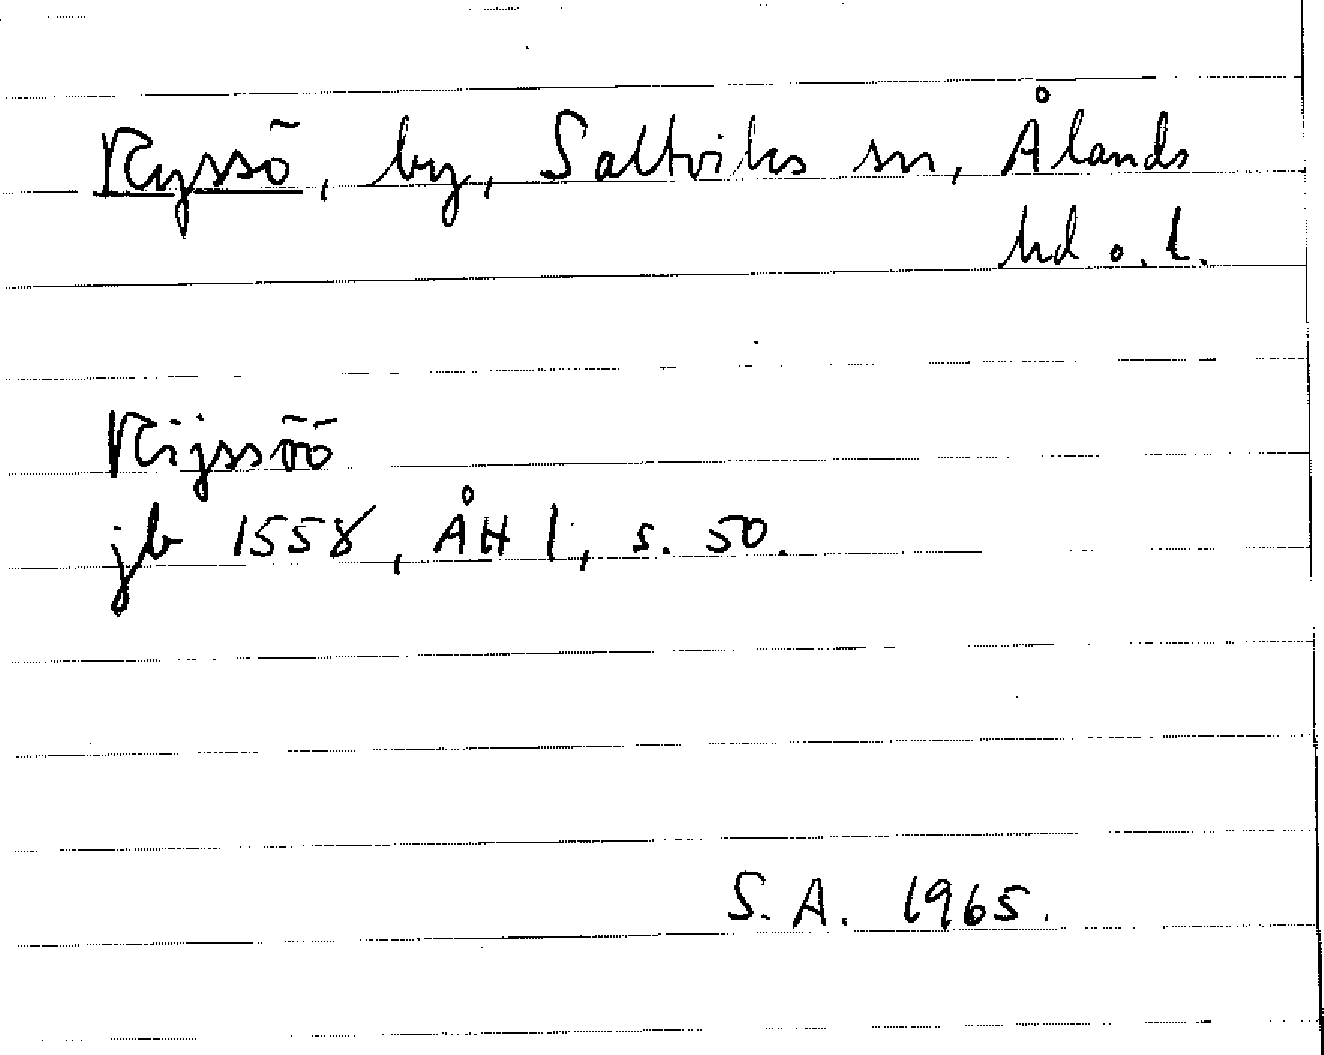 Kyssö, by, Saltviks sn, Ålands
hd o. l.
Kijssöö
jb 1558, ÅH 1, s. 50.
S. A. 1965.